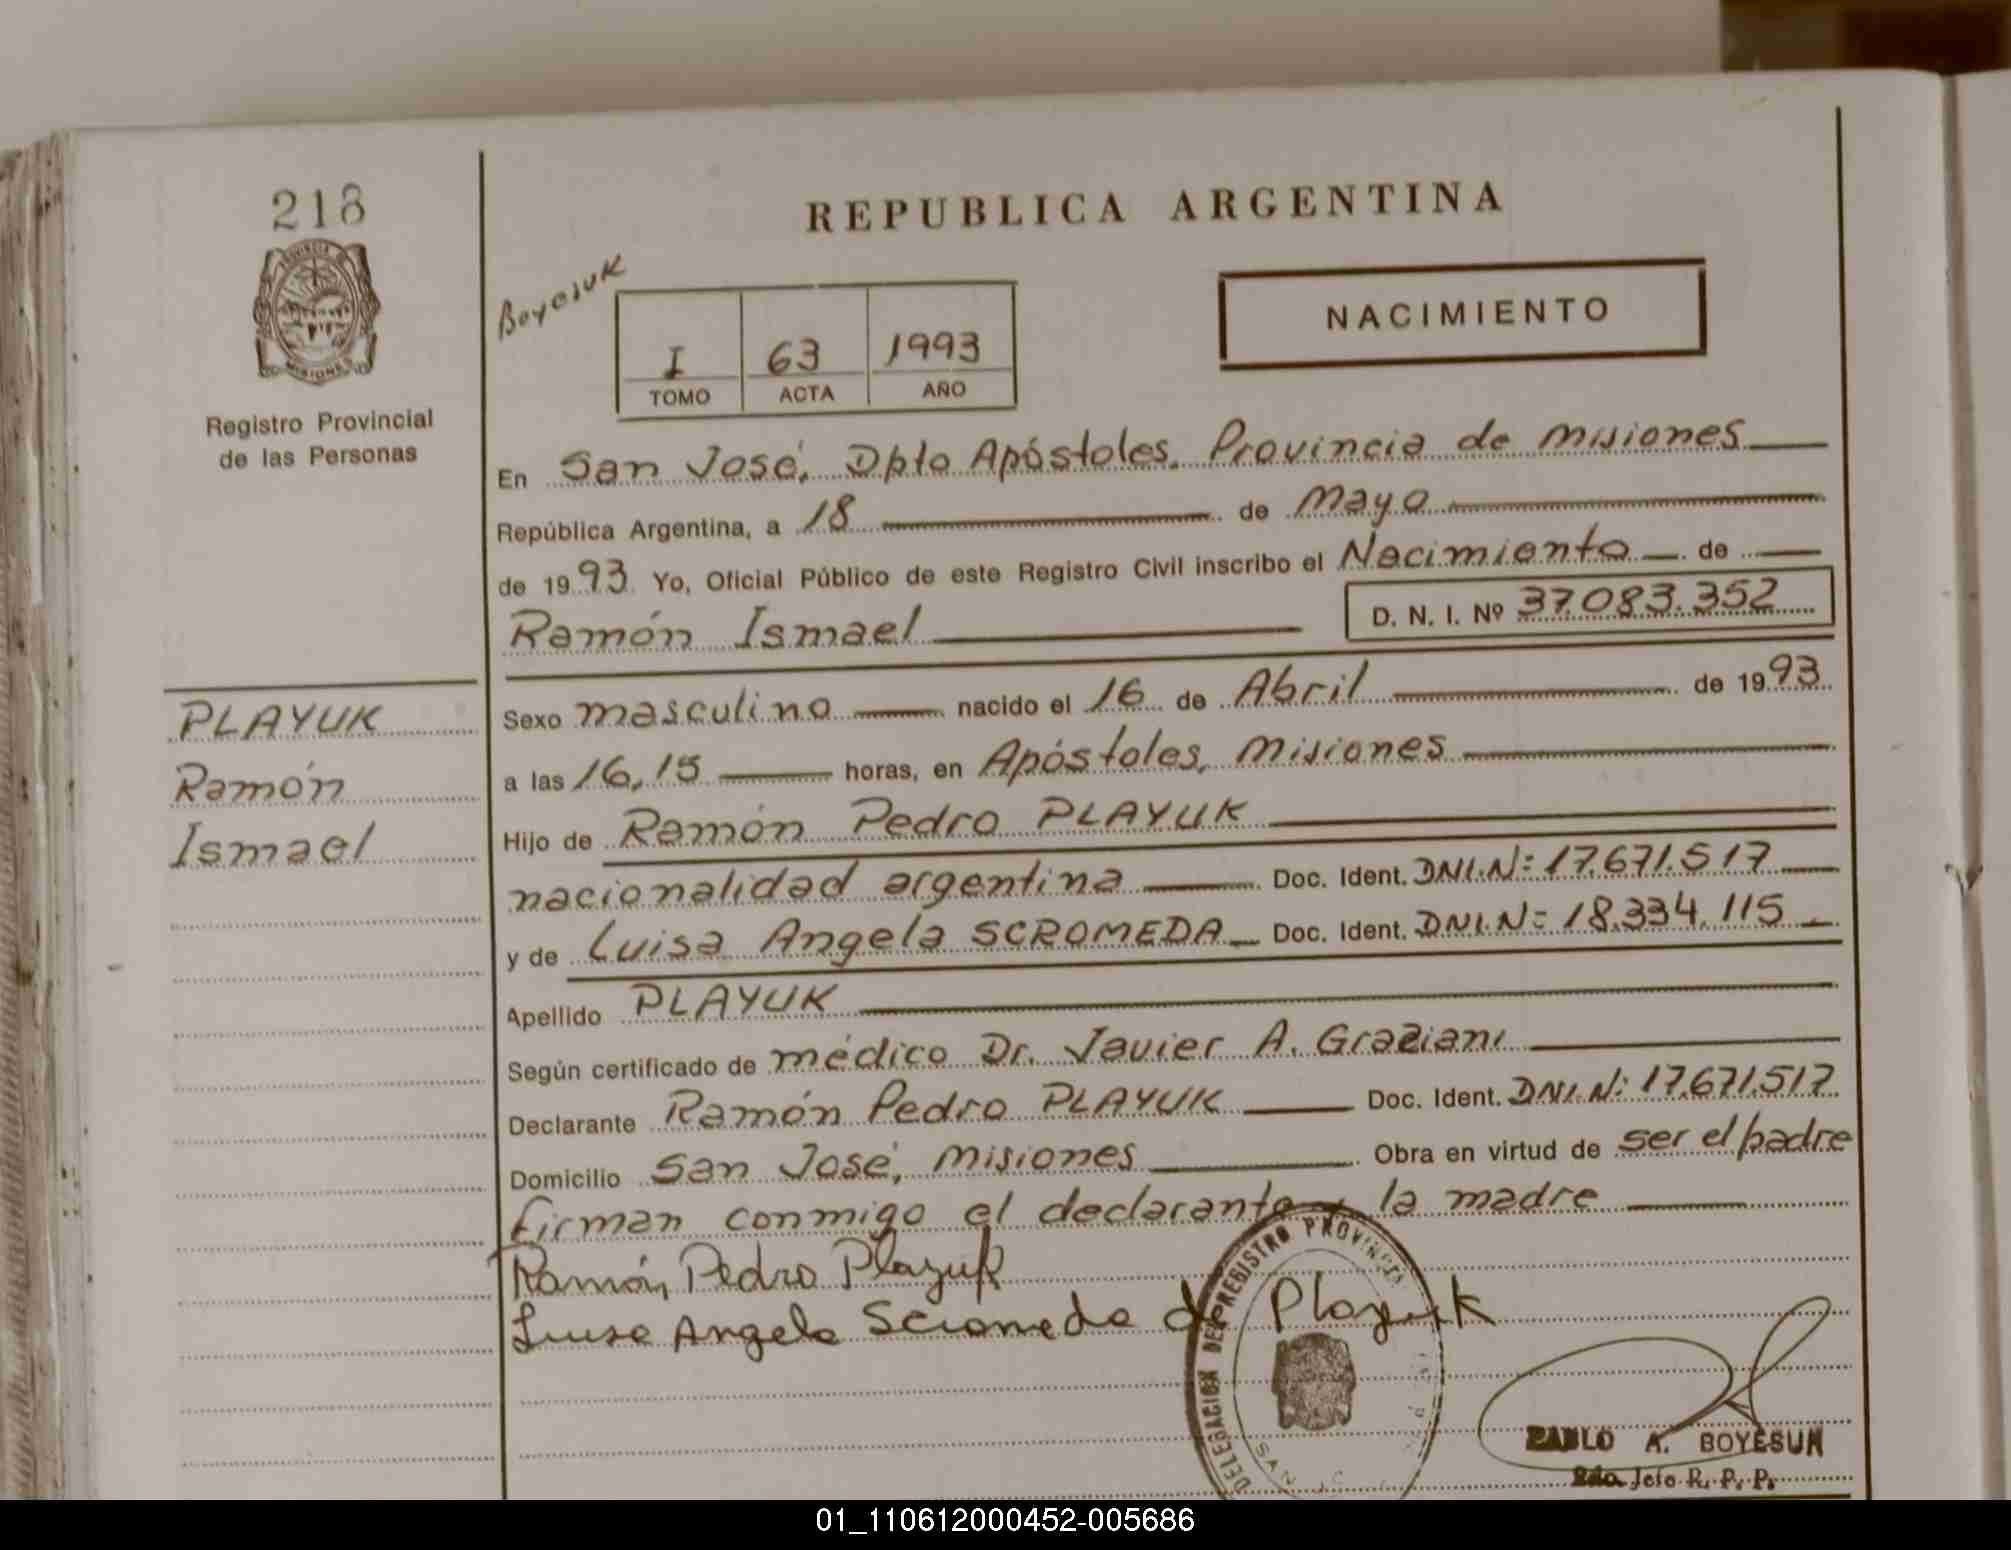 218
PROVINCIA DE
MISIONES
Registro Provincial
de las Personas
PLAYUK
Ramón
Ismael
REPUBLICA ARGENTINA
Boyesuk
I 63 1993
TOMO ACTA AÑO
NACIMIENTO
En San José, Dpto Apóstoles, Provincia de Misiones
República Argentina, a 18 de Mayo
de 1993 Yo, Oficial Público de este Registro Civil inscribo el Nacimiento de
Ramón Ismael D. N. I. Nº 37.083.352
Sexo masculino nacido el 16 de Abril de 1993
a las 16,15 horas, en Apóstoles, Misiones
Hijo de Ramón Pedro PLAYUK
nacionalidad argentina Doc. Ident. DNI.Nº: 17.671.517
y de Luisa Angela SCROMEDA Doc. Ident. DNI.Nº: 18.334.115
Apellido PLAYUK
Según certificado de médico Dr. Javier A. Graziani
Declarante Ramón Pedro PLAYUK Doc. Ident. DNI.Nº: 17.671.517
Domicilio San José, Misiones Obra en virtud de ser el padre
Firman conmigo el declarante y la madre
Ramón Pedro Playuk
Luisa Angela Scromeda de Playuk
DELEGACION DEL REGISTRO PROVINCIAL
SAN
PABLO A. BOYESUK
2do. Jefe R. P. P.
01_110612000452-005686